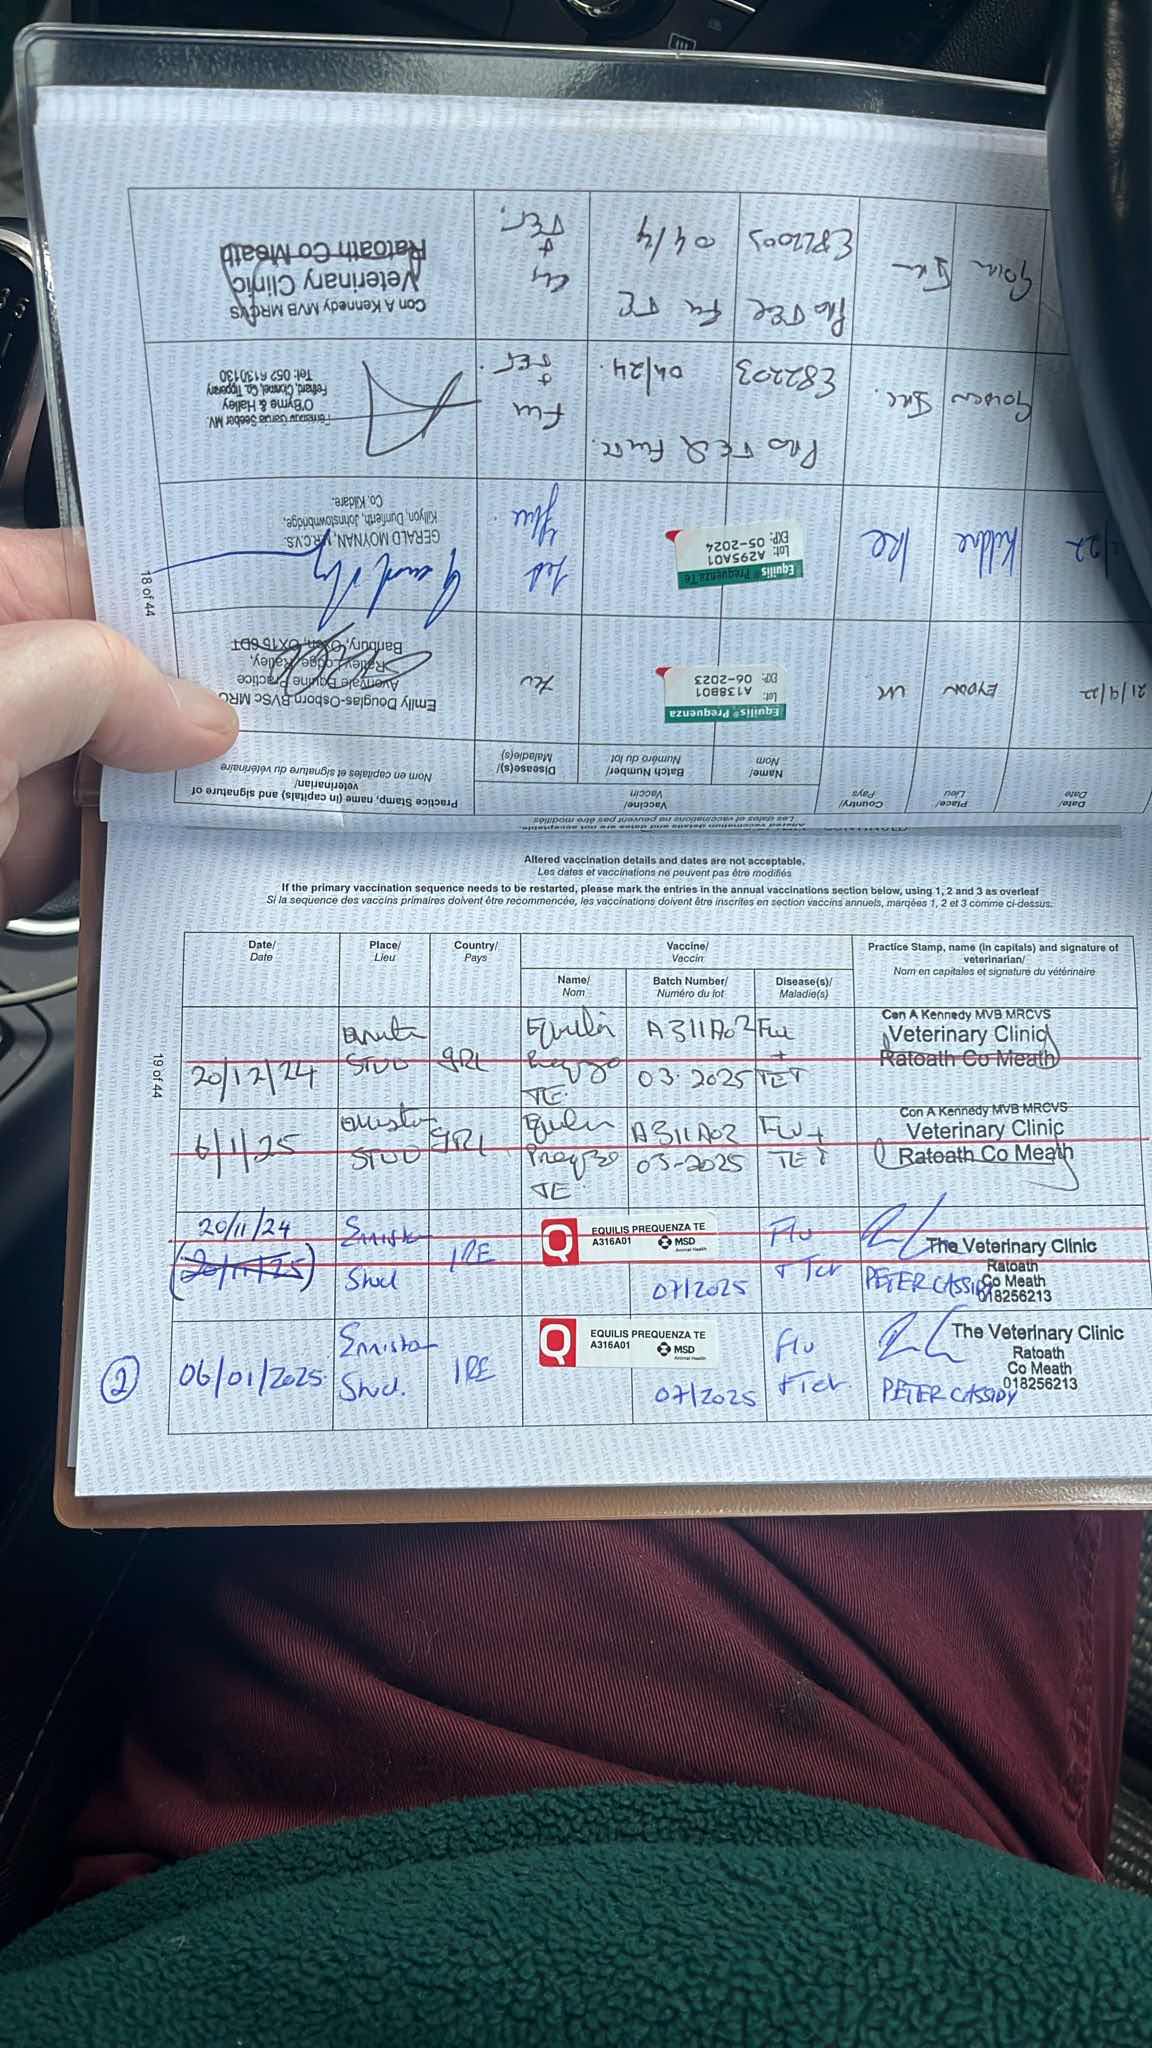 Con A Kennedy MVB MRCVS
Veterinary Clinic
Ratoath Co Meath
Flu
+
TET.
04/4
E82203
O'Byrne & Halley
Fethard, Clonmel, Co. Tipperary
Tel: 052 6130130
Flu
+
TET.
04/24.
E82203
GERALD MOYNAN, M.R.C.V.S.
Killyon, Dunfierth, Johnstownbridge,
Co. Kildare.
Tet
Flu
Equilis® Prequenza Te
Lot: A295A01
EXP: 05-2024
IRE
Kildare
18 of 44
Emily Douglas-Osborn BVSc MRC
Avonvale Equine Practice
Ratley Lodge, Ratley,
Banbury, Oxon, OX15 6DT
Flu
Equilis® Prequenza
Lot: A138B01
EXP: 06-2023
UK
EYDON
21/4/22
Practice Stamp, name (in capitals) and signature of
veterinarian/
Nom en capitales et signature du vétérinaire
Disease(s)/
Maladie(s)
Vaccine/
Vaccin
Batch Number/
Numéro du lot
Name/
Nom
Country/
Pays
Place/
Lieu
Date/
Date
Altered vaccination details and dates are not acceptable.
Les dates et vaccinations ne peuvent pas être modifiés
Altered vaccination details and dates are not acceptable.
Les dates et vaccinations ne peuvent pas être modifiés
If the primary vaccination sequence needs to be restarted, please mark the entries in the annual vaccinations section below, using 1, 2 and 3 as overleaf
Si la sequence des vaccins primaires doivent être recommencée, les vaccinations doivent être inscrites en section vaccins annuels, marqées 1, 2 et 3 comme ci-dessus.
Date/
Date
Place/
Lieu
Country/
Pays
Vaccine/
Vaccin
Name/
Nom
Batch Number/
Numéro du lot
Disease(s)/
Maladie(s)
Practice Stamp, name (in capitals) and signature of
veterinarian/
Nom en capitales et signature du vétérinaire
19 of 44
20/12/24
STUD
IRL
TE
A311A02
03.2025
Flu
+
TET
Con A Kennedy MVB MRCVS
Veterinary Clinic
Ratoath Co Meath
6/1/25
STUD
IRL
TE
A311A02
03-2025
FLU +
TET
Con A Kennedy MVB MRCVS
Veterinary Clinic
Ratoath Co Meath
20/11/24
(20/11/25)
Ennistar
Stud
IRE
Q
EQUILIS PREQUENZA TE
A316A01
MSD
Animal Health
07/2025
Flu
+ Tet
The Veterinary Clinic
Ratoath
Co Meath
018256213
PETER CASSIDY
2
06/01/2025.
Ennistar
Stud.
IRE
Q
EQUILIS PREQUENZA TE
A316A01
MSD
Animal Health
07/2025
Flu
+ Tet.
The Veterinary Clinic
Ratoath
Co Meath
018256213
PETER CASSIDY